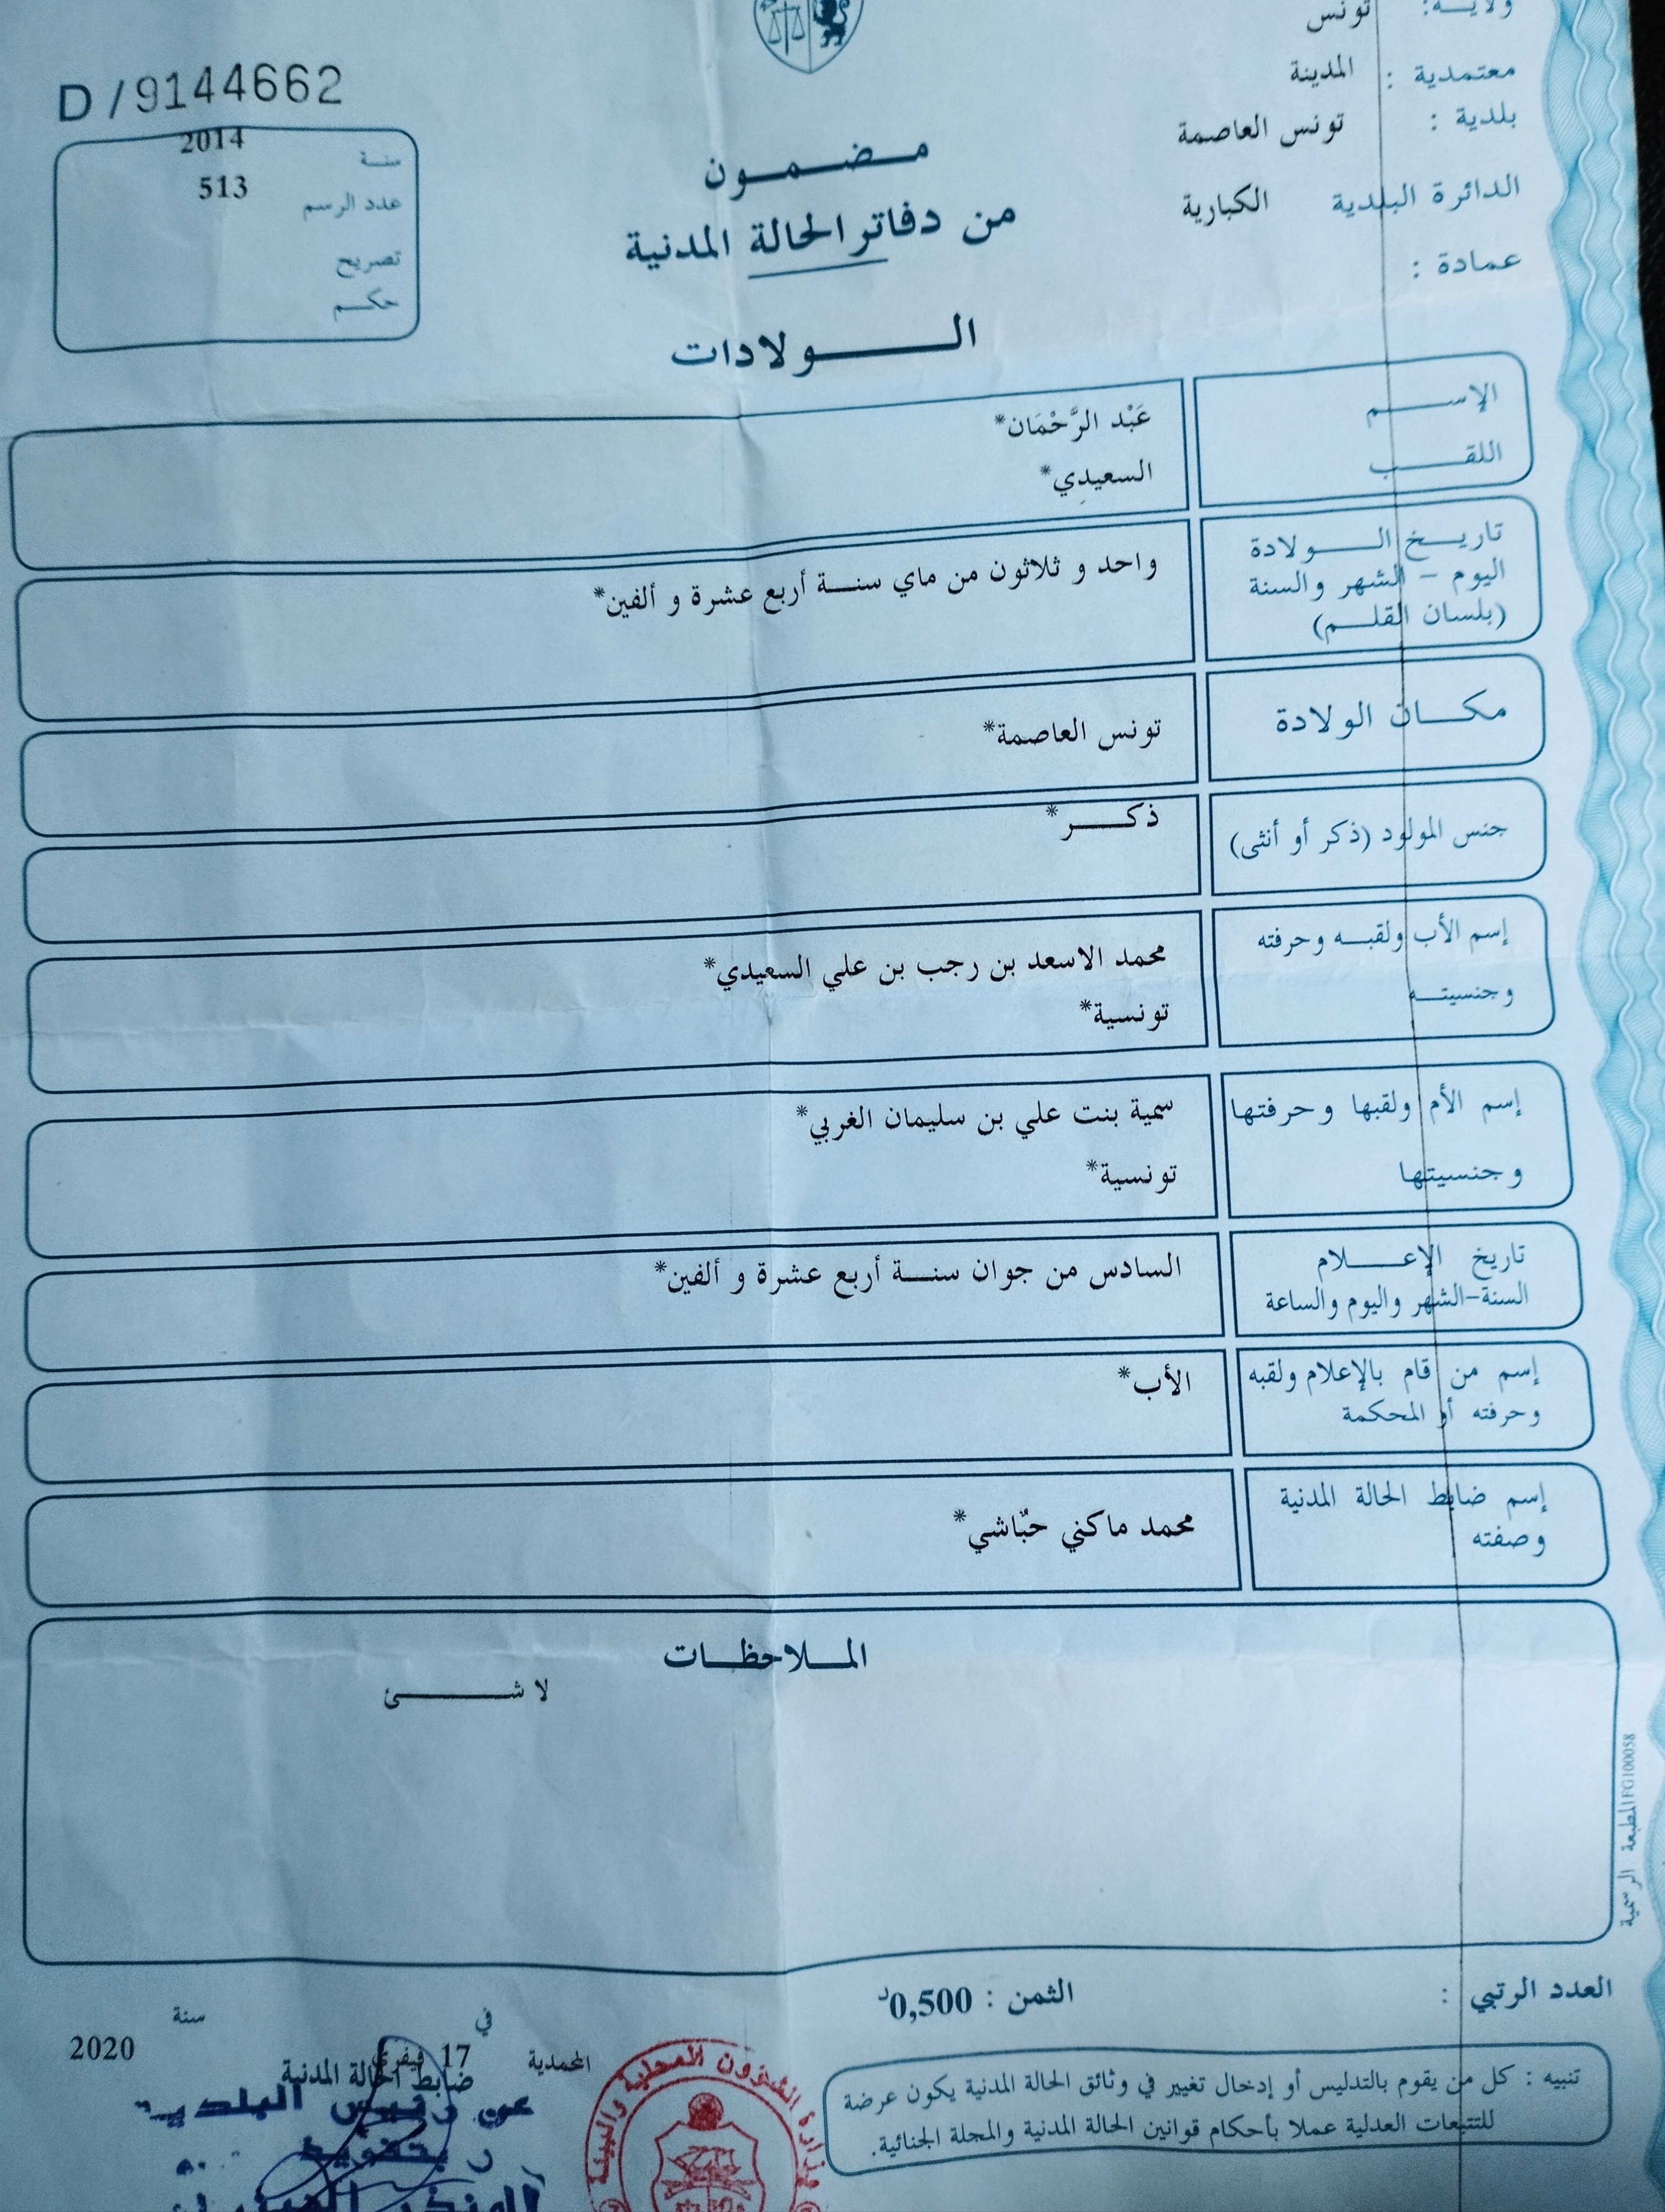 ولايــة: تونس
معتمدية : المدينة
بلدية : تونس العاصمة
الدائرة البلدية الكبارية
عمادة :
D/9144662
سنة 2014
عدد الرسم 513
تصريح
حكم
مضمون
من دفاتر الحالة المدنية
الولادات
الإسم عَبْد الرَّحْمَان*
اللقب السعيدي*
تاريخ الولادة
اليوم - الشهر والسنة
(بلسان القلم)
واحد و ثلاثون من ماي سنة أربع عشرة و ألفين*
مكان الولادة تونس العاصمة*
جنس المولود (ذكر أو أنثى) ذكر*
إسم الأب ولقبه وحرفته
وجنسيته
محمد الاسعد بن رجب بن علي السعيدي*
تونسية*
إسم الأم ولقبها وحرفتها
وجنسيتها
سمية بنت علي بن سليمان الغربي*
تونسية*
تاريخ الإعلام
السنة-الشهر واليوم والساعة
السادس من جوان سنة أربع عشرة و ألفين*
إسم من قام بالإعلام ولقبه
وحرفته أو المحكمة
الأب*
إسم ضابط الحالة المدنية
وصفته
محمد ماكني حبّاشي*
الملاحظات
لا شئ
المطبعة الرسمية FG10058
العدد الرتبي :
الثمن : 0,500د
تنبيه : كل من يقوم بالتدليس أو إدخال تغيير في وثائق الحالة المدنية يكون عرضة
للتتبعات العدلية عملا بأحكام قوانين الحالة المدنية والمجلة الجنائية.
في سنة
المحمدية 17 فيفري 2020
ضابط الحالة المدنية
عن رئيس البلدية
بتفويض
وزارة الشؤون المحلية والبيئة